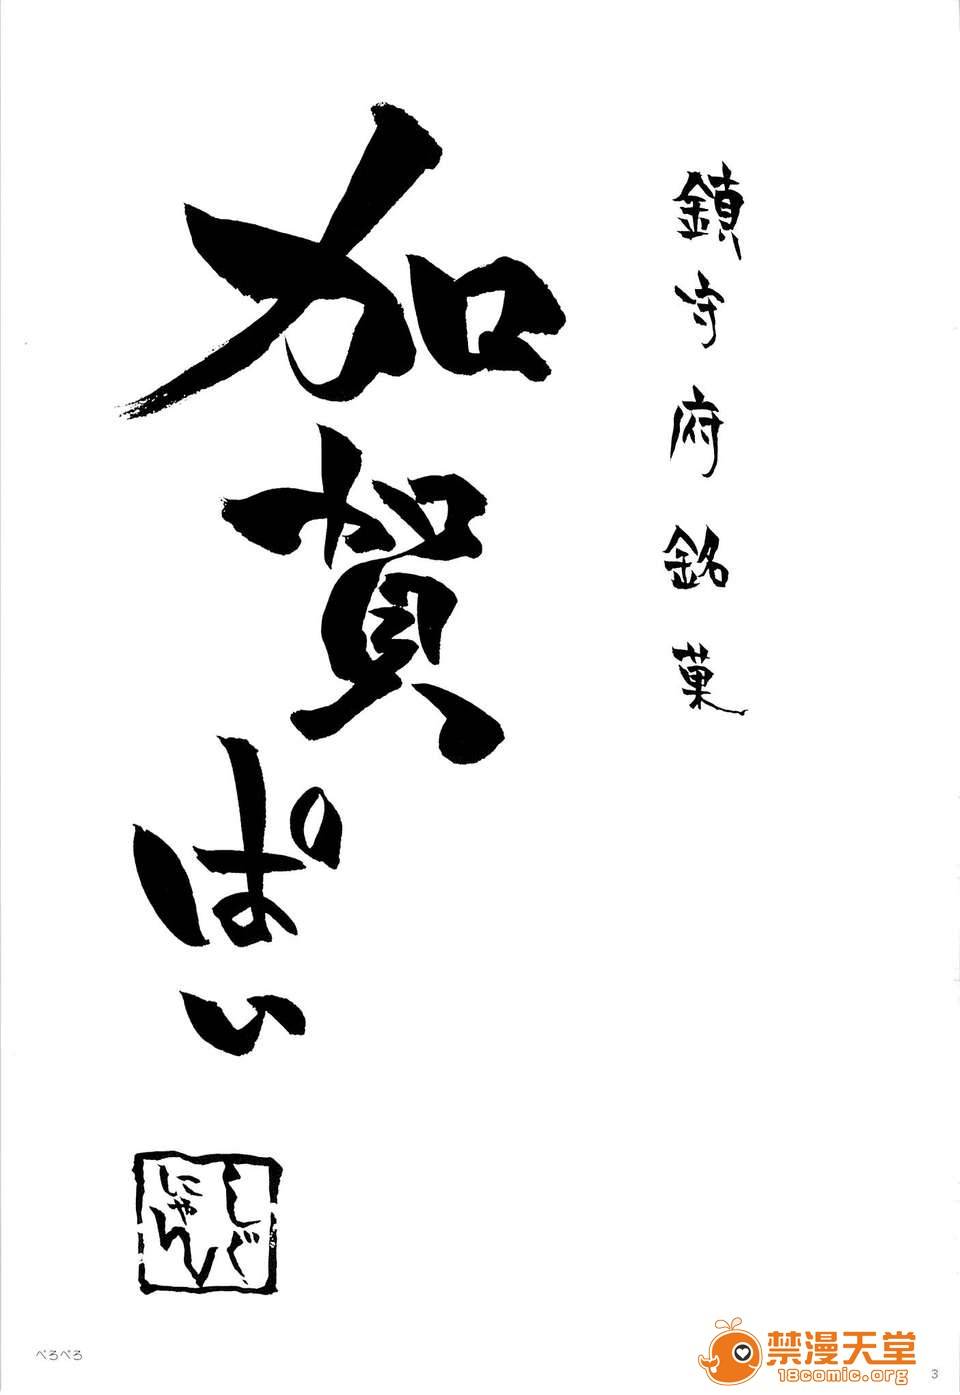 鎮守府銘菓
加賀ぱい
しぐ
にゃん
ぺろぺろ
禁漫天堂
18comic.org
3